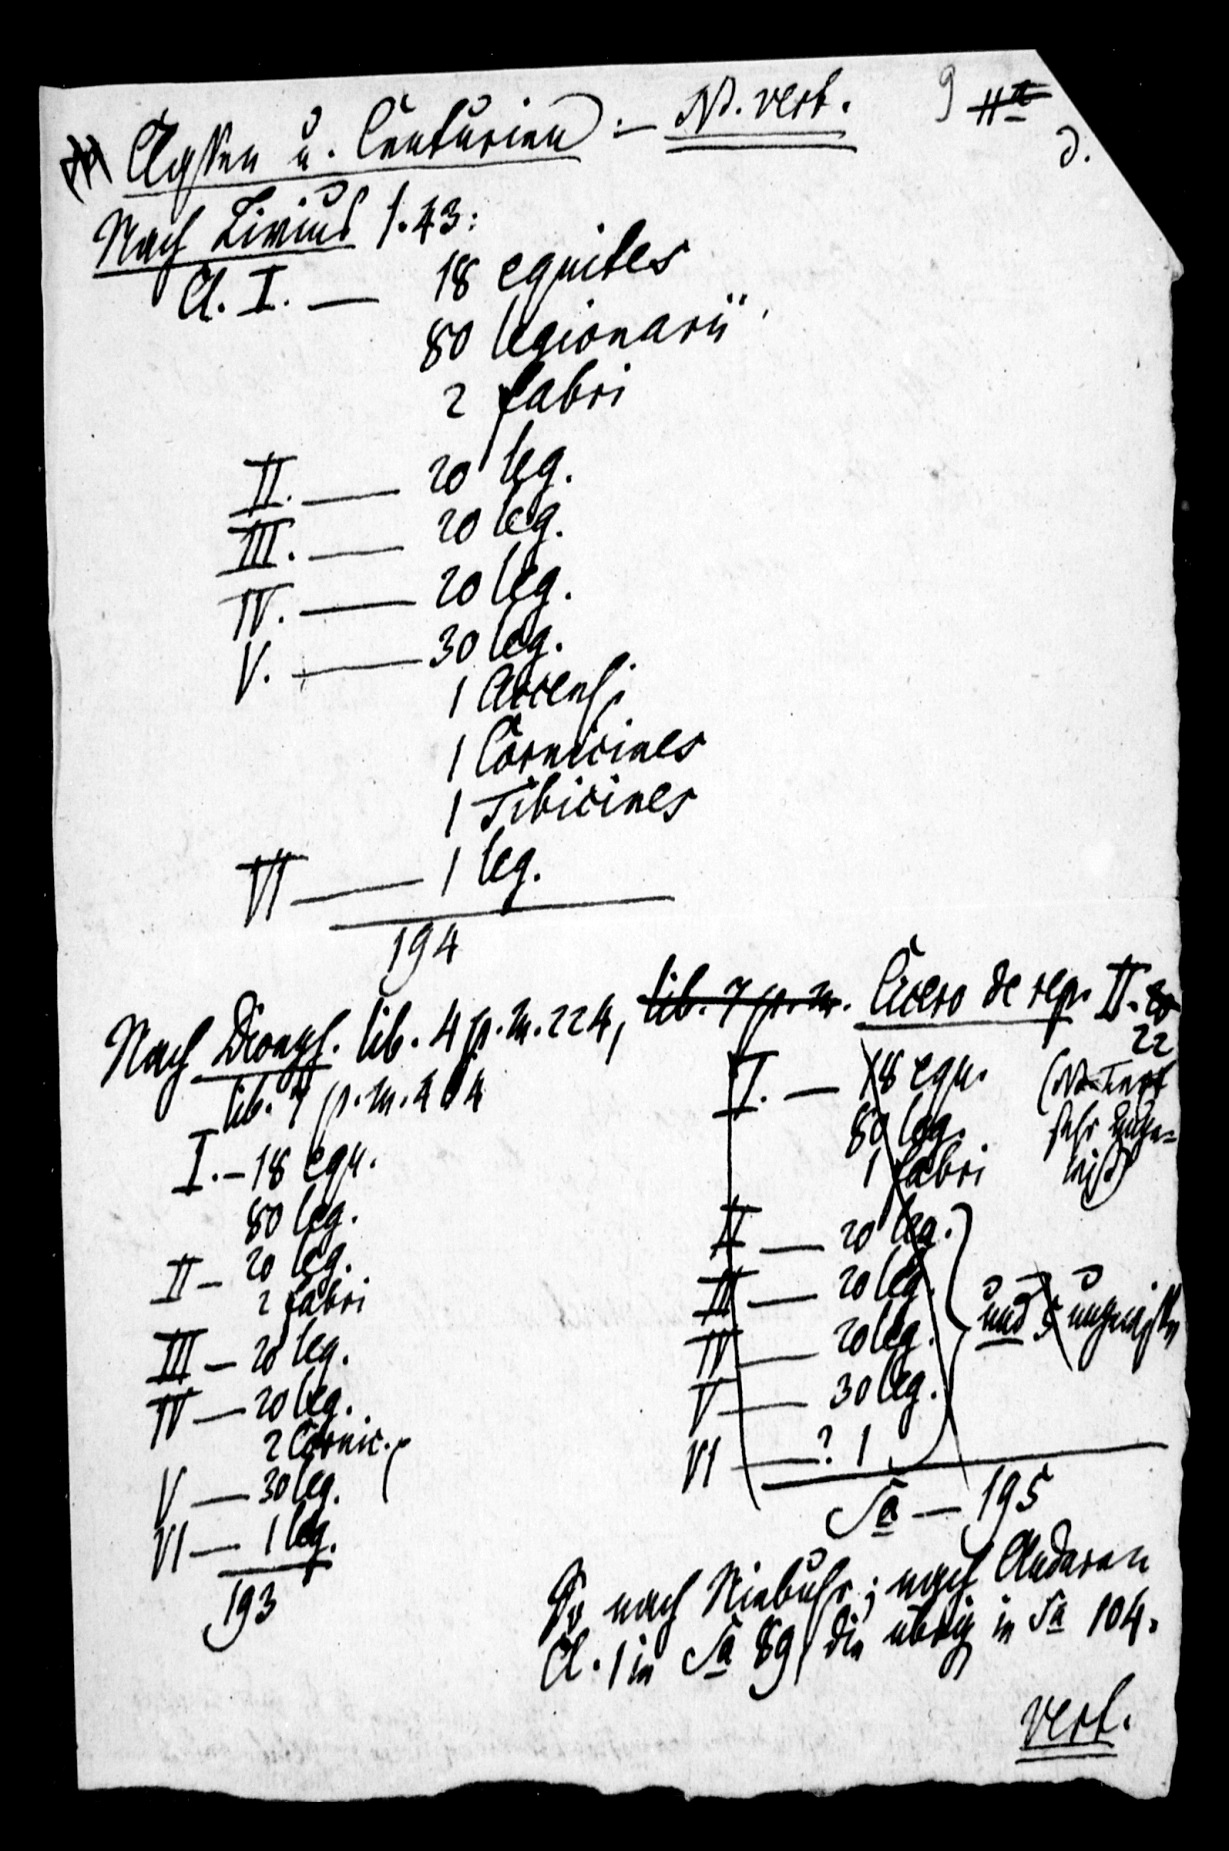 Classen u. Centurien :— NB. vert. 9
d.
Nach Livius 1.43:
Cl. I. — 18 equites
80 legionarii
2 fabri
II. — 20 leg.
III. — 20 leg.
IV. — 20 leg.
V. — 30 leg.
1 Accensi
1 Cornicines
1 Tibicines
VI — 1 leg.
194
Nach Dionys. lib. 4 p. m. 224,
lib. 7 p. m.
I. — 18 equ.
80 leg.
II — 20 leg.
2 fabri
III — 20 leg.
IV — 20 leg.
2 Cornic.
V — 30 leg.
VI — 1 leg.
193
lib. 7 p. m. Cicero de rep. II. 20
22
I. — 18 equ. (NB Text
80 leg. sehr unge-
1 fabri wiß)
II — 20 leg.
III — 20 leg.
IV — 20 leg. und 5 ungewiß
V — 30 leg.
VI — ? 1
Sa — 195
So nach Niebuhr; nach Anderen
Cl. 1 in Sa 89, die übrig in Sa 104.
vert.